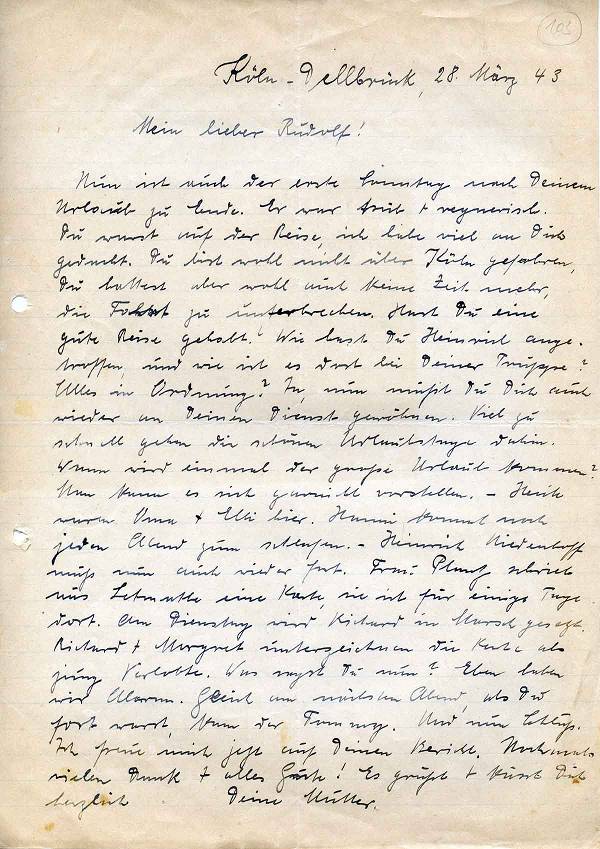 103
Köln-Dellbrück, 28. März 43
Mein lieber Rudolf!
Nun ist auch der erste Sonntag nach Deinem
Urlaub zu Ende. Er war trüb + regnerisch.
Du warst auf der Reise, ich habe viel an Dich
gedacht. Du bist wohl nicht über Köln gefahren,
Du hattest aber wohl auch keine Zeit mehr,
die Fahrt zu unterbrechen. Hast Du eine
gute Reise gehabt? Wie hast Du Heinrich ange-
troffen, und wie ist es dort bei Deiner Truppe?
Alles in Ordnung? Ja, nun mußt Du Dich auch
wieder an Deinen Dienst gewöhnen. Viel zu
schnell gehen die schönen Urlaubstage dahin.
Wann wird einmal der große Urlaub kommen?
Man kann es sich garnicht vorstellen. – Heute
waren Oma + Elli hier. Hanni kommt noch
jeden Abend zum schlafen. – Heinrich Niedenhoff
muß nun auch wieder fort. Frau schrieb
aus Letmathe eine Karte, sie ist für einige Tage
dort. Am Dienstag wird Richard in Marsch gesetzt.
Richard + Margret unterzeichnen die Karte als
jung Verlobte. Was sagst Du nun? Eben haben
wir Alarm. Gleich am nächsten Abend, als Du
fort warst, kam der Tommy. Und nun Schluß.
Ich freue mich jetzt auf Deinen Bericht. Nochmals
vielen Dank + alles Gute! Es grüßt + küsst Dich
herzlich Deine Mutter.